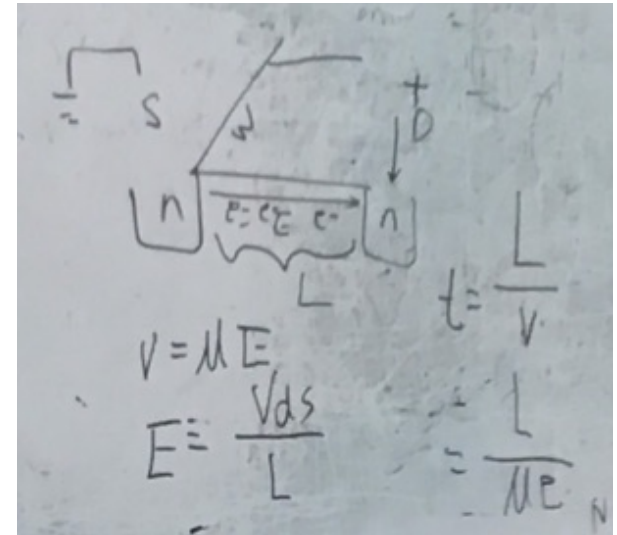 S
W
+
D
n
e- e- e-
n
L
t = L / V
V = μE
E = Vds / L
= L / μE
N